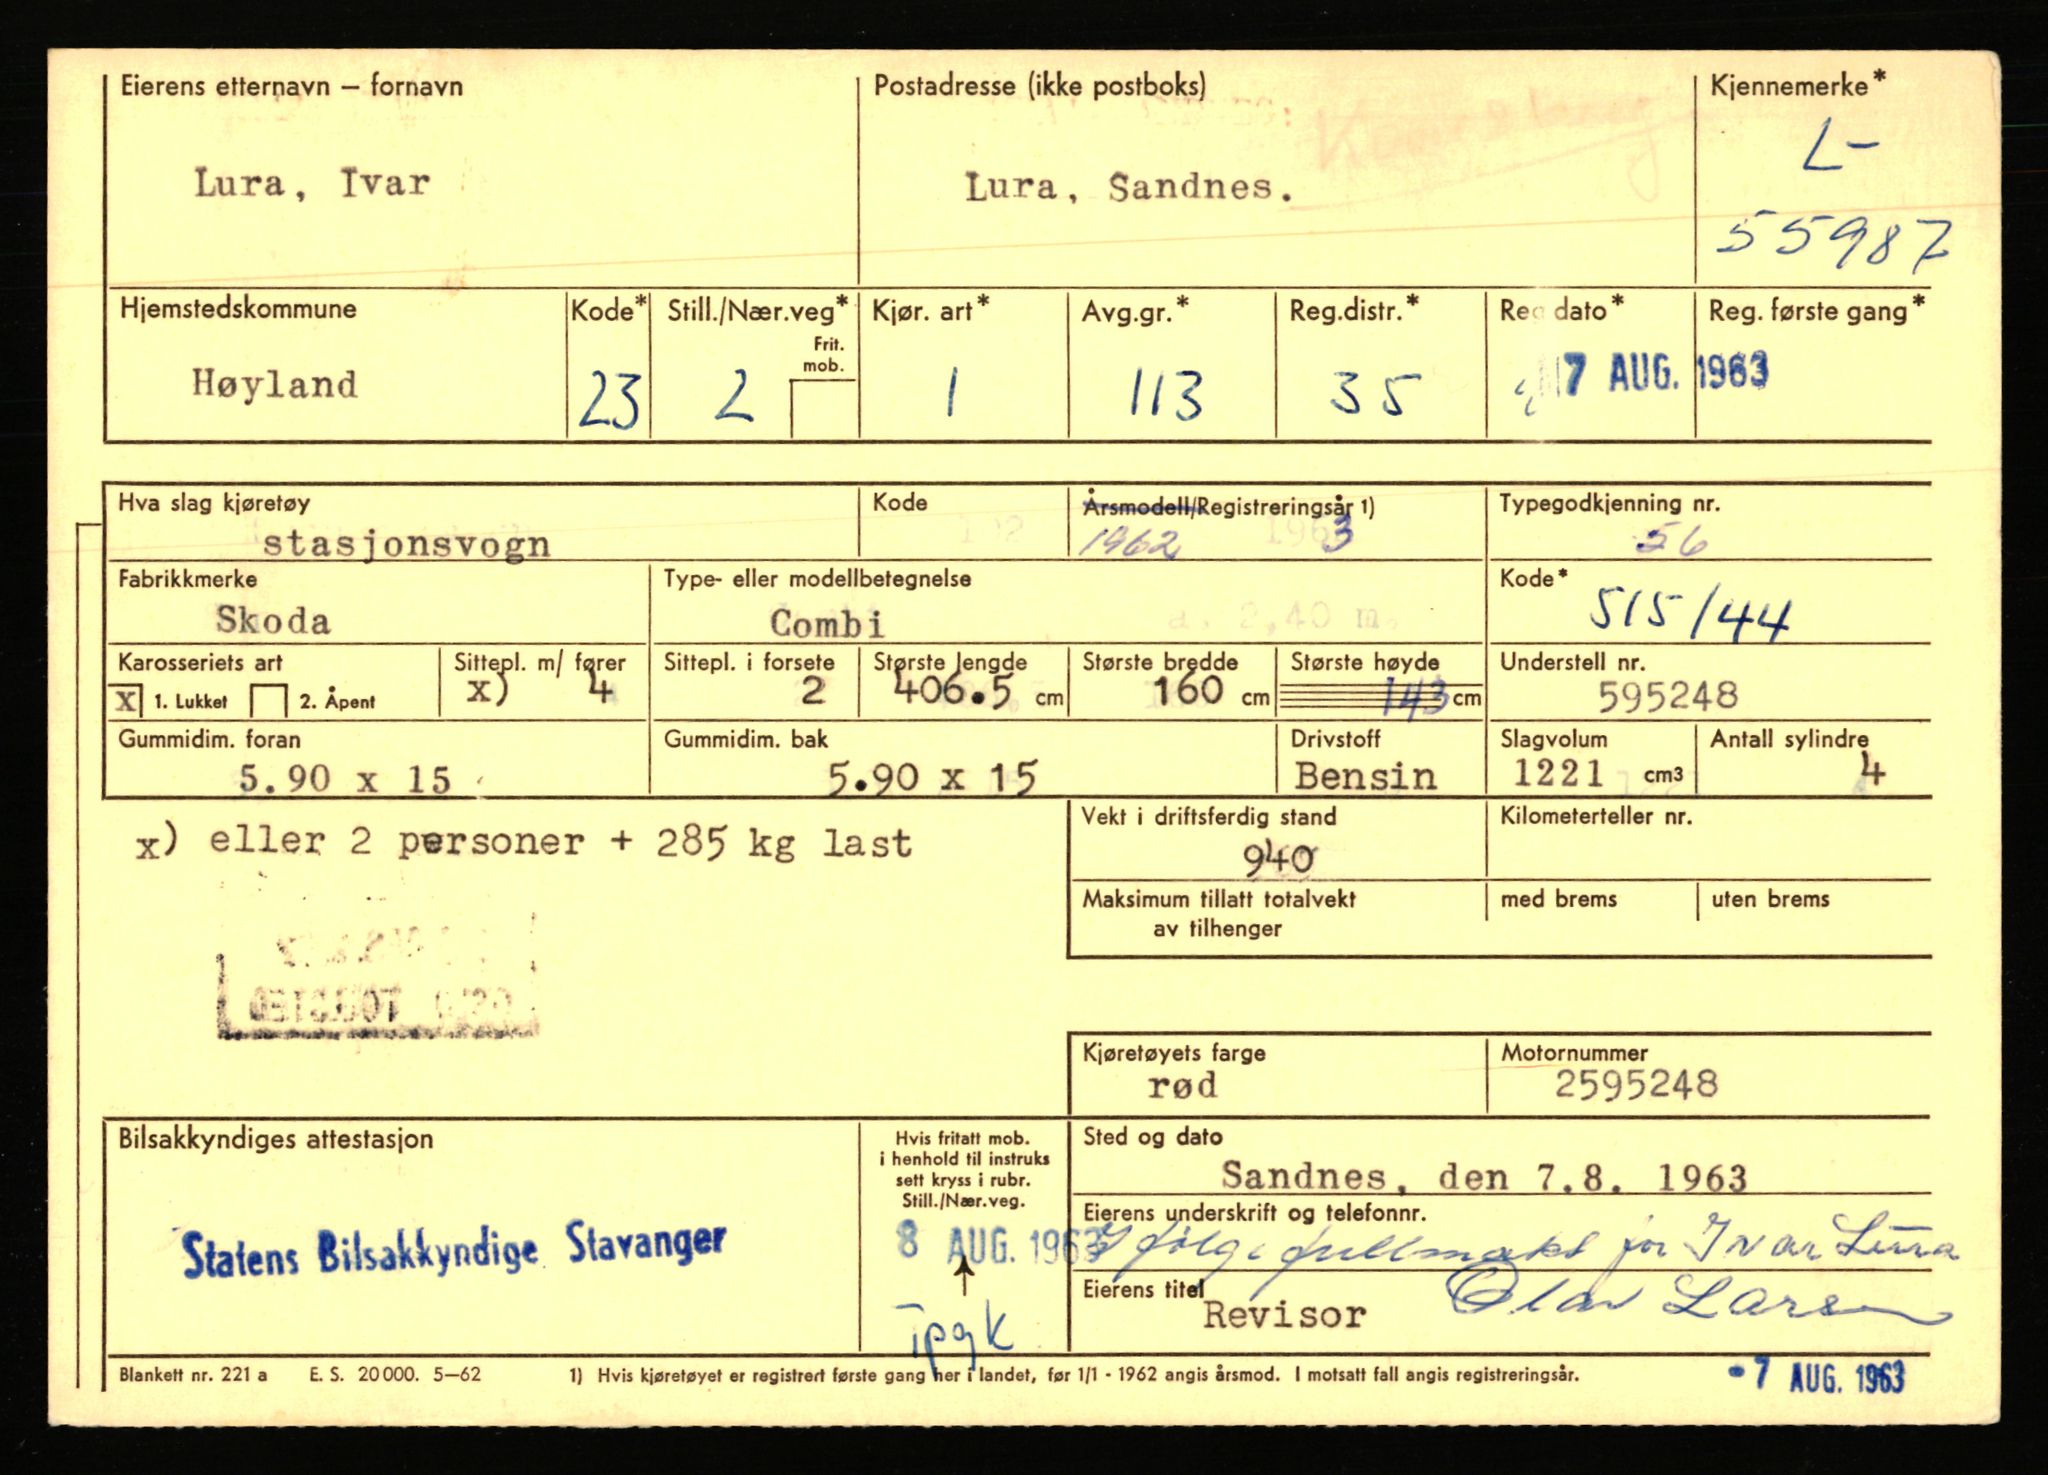 Eierens etternavn – fornavn
Lura, Ivar
Postadresse (ikke postboks)
Lura, Sandnes.
Kjennemerke*
L-
55987
Hjemstedskommune
Høyland
Kode*
23
Still./Nær.veg*
Frit.
mob.
2
Kjør. art*
1
Avg.gr.*
113
Reg.distr.*
35
Reg dato*
Reg. første gang*
7 AUG. 1963
Hva slag kjøretøy
stasjonsvogn
Kode
Årsmodell/Registreringsår 1)
1962 1963
Typegodkjenning nr.
56
Fabrikkmerke
Skoda
Type- eller modellbetegnelse
Combi
Kode*
515/44
Karosseriets art
X 1. Lukket 2. Åpent
Sittepl. m/ fører
x) 4
Sittepl. i forsete
2
Største lengde
406.5 cm
Største bredde
160 cm
Største høyde
143 cm
Understell nr.
595248
Gummidim. foran
5.90 x 15
Gummidim. bak
5.90 x 15
Drivstoff
Bensin
Slagvolum
1221 cm3
Antall sylindre
4
x) eller 2 personer + 285 kg last
Vekt i driftsferdig stand
940
Kilometerteller nr.
Maksimum tillatt totalvekt
av tilhenger
med brems
uten brems
Kjøretøyets farge
rød
Motornummer
2595248
Bilsakkyndiges attestasjon
Statens Bilsakkyndige Stavanger
Hvis fritatt mob.
i henhold til instruks
sett kryss i rubr.
Still./Nær.veg.
8 AUG. 1963
Tpgk
Sted og dato
Sandnes, den 7.8. 1963
Eierens underskrift og telefonnr.
I følge fullmakt for Ivar Lura
Olav Larsen
Eierens titel
Revisor
Blankett nr. 221 a E. S. 20000. 5–62 1) Hvis kjøretøyet er registrert første gang her i landet, før 1/1 - 1962 angis årsmod. I motsatt fall angis registreringsår.
-7 AUG. 1963